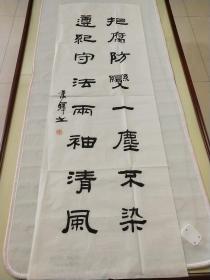 拒腐防變一塵不染
遵紀守法兩袖清風